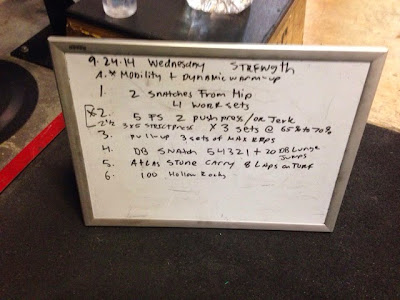 9.24.14 Wednesday STRENGTH
A.* Mobility + Dynamic warm-up
1. 2 Snatches From Hip
4 work sets
*2. 5 FS 2 push press/or Jerk
2½ 3x5 STRICT PRESS X 3 sets @ 65% to 70%
3. Pull-up 3 sets of MAX REPS
4. DB SNATCH 54321 + 20 DB Lunge Jumps
5. Atlas Stone Carry 8 Laps on Turf
6. 100 Hollow Rocks